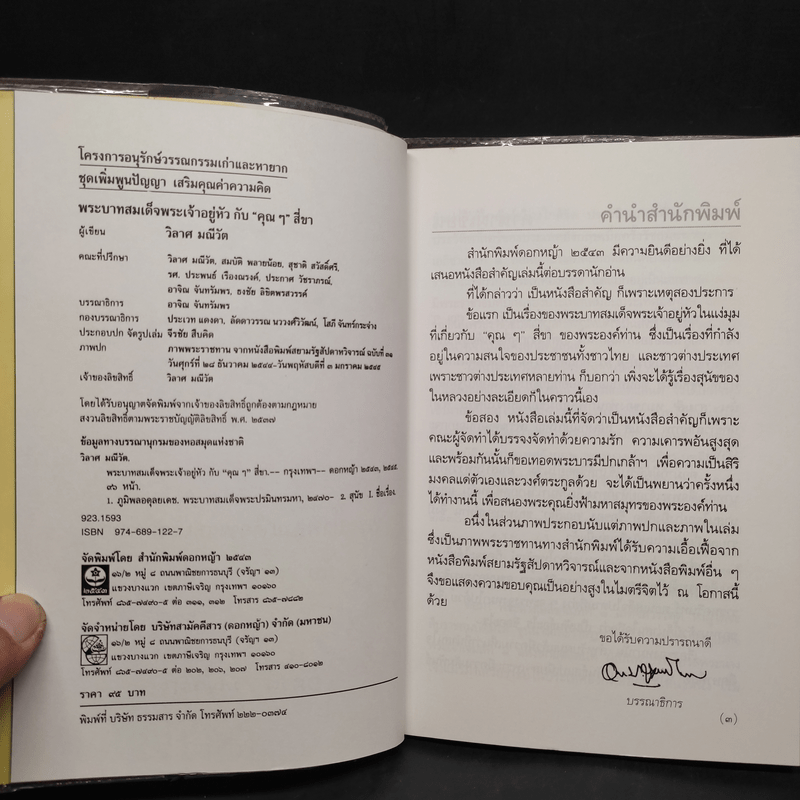 โครงการอนุรักษ์วรรณกรรมเก่าและหายาก
ชุดเพิ่มพูนปัญญา เสริมคุณค่าความคิด
พระบาทสมเด็จพระเจ้าอยู่หัว กับ "คุณ ๆ" สี่ขา
ผู้เขียน วิลาศ มณีวัต
คณะที่ปรึกษา วิลาศ มณีวัต, สมบัติ พลายน้อย, สุชาติ สวัสดิ์ศรี,
รศ. ประพนธ์ เรืองณรงค์, ประกาศ วัชราภรณ์,
อาจิณ จันทรัมพร, ธงชัย ลิขิตพรสวรรค์
บรรณาธิการ อาจิณ จันทรัมพร
กองบรรณาธิการ ประเวท แดงดา, ลัดดาวรรณ นววงศ์วิวัฒน์, โสภี จันทร์กระจ่าง
ประกอบปก จัดรูปเล่ม จีรชัย สืบคิด
ภาพปก ภาพพระราชทาน จากหนังสือพิมพ์สยามรัฐสัปดาหวิจารณ์ ฉบับที่ ๓๑
วันศุกร์ที่ ๒๘ ธันวาคม ๒๕๔๔-วันพฤหัสบดีที่ ๓ มกราคม ๒๕๔๕
เจ้าของลิขสิทธิ์ วิลาศ มณีวัต
โดยได้รับอนุญาตจัดพิมพ์จากเจ้าของลิขสิทธิ์ถูกต้องตามกฎหมาย
สงวนลิขสิทธิ์ตามพระราชบัญญัติลิขสิทธิ์ พ.ศ. ๒๕๓๗
ข้อมูลทางบรรณานุกรมของหอสมุดแห่งชาติ
วิลาศ มณีวัต.
พระบาทสมเด็จพระเจ้าอยู่หัว กับ "คุณ ๆ" สี่ขา.-- กรุงเทพฯ-- ดอกหญ้า ๒๕๔๓, ๒๕๔๕.
๓๖ หน้า.
1. ภูมิพลอดุลยเดช. พระบาทสมเด็จพระปรมินทรมหา, ๒๔๗๐- 2. สุนัข I. ชื่อเรื่อง.
923.1593
ISBN 974-689-122-7
จัดพิมพ์โดย สำนักพิมพ์ดอกหญ้า ๒๕๔๓
๒๕๔๓
๑๖/๒ หมู่ ๘ ถนนพาณิชยการธนบุรี (จรัญฯ ๑๓)
แขวงบางแวก เขตภาษีเจริญ กรุงเทพฯ ๑๐๑๖๐
โทรศัพท์ ๘๖๕-๗๔๙๐-๕ ต่อ ๓๑๑, ๓๑๒ โทรสาร ๘๖๕-๗๘๘๒
จัดจำหน่ายโดย บริษัทสามัคคีสาร (ดอกหญ้า) จำกัด (มหาชน)
๑๖/๒ หมู่ ๘ ถนนพาณิชยการธนบุรี (จรัญฯ ๑๓)
แขวงบางแวก เขตภาษีเจริญ กรุงเทพฯ ๑๐๑๖๐
โทรศัพท์ ๘๖๕-๗๔๙๐-๕ ต่อ ๒๐๒, ๒๐๖, ๒๐๗ โทรสาร ๔๑๐-๘๐๑๒
ราคา ๙๕ บาท
พิมพ์ที่ บริษัท ธรรมสาร จำกัด โทรศัพท์ ๒๒๒-๐๓๗๔
คำนำสำนักพิมพ์
สำนักพิมพ์ดอกหญ้า ๒๕๔๓ มีความยินดีอย่างยิ่ง ที่ได้
เสนอหนังสือสำคัญเล่มนี้ต่อบรรดานักอ่าน
ที่ได้กล่าวว่า เป็นหนังสือสำคัญ ก็เพราะเหตุสองประการ
ข้อแรก เป็นเรื่องของพระบาทสมเด็จพระเจ้าอยู่หัวในแง่มุม
ที่เกี่ยวกับ "คุณ ๆ" สี่ขา ของพระองค์ท่าน ซึ่งเป็นเรื่องที่กำลัง
อยู่ในความสนใจของประชาชนทั้งชาวไทย และชาวต่างประเทศ
เพราะชาวต่างประเทศหลายท่าน ก็บอกว่า เพิ่งจะได้รู้เรื่องสุนัขของ
ในหลวงอย่างละเอียดก็ในคราวนี้เอง
ข้อสอง หนังสือเล่มนี้ที่จัดว่าเป็นหนังสือสำคัญก็เพราะ
คณะผู้จัดทำได้บรรจงจัดทำด้วยความรัก ความเคารพอันสูงสุด
และพร้อมกันนั้นก็ขอเทอดพระบารมีปกเกล้าฯ เพื่อความเป็นสิริ
มงคลแด่ตัวเองและวงศ์ตระกูลด้วย จะได้เป็นพยานว่าครั้งหนึ่ง
ได้ทำงานนี้ เพื่อสนองพระคุณยิ่งฟ้ามหาสมุทรของพระองค์ท่าน
อนึ่งในส่วนภาพประกอบนับแต่ภาพปกและภาพในเล่ม
ซึ่งเป็นภาพพระราชทานทางสำนักพิมพ์ได้รับความเอื้อเฟื้อจาก
หนังสือพิมพ์สยามรัฐสัปดาหวิจารณ์และจากหนังสือพิมพ์อื่น ๆ
จึงขอแสดงความขอบคุณเป็นอย่างสูงในไมตรีจิตไว้ ณ โอกาสนี้
ด้วย
ขอได้รับความปรารถนาดี
บรรณาธิการ
(๓)